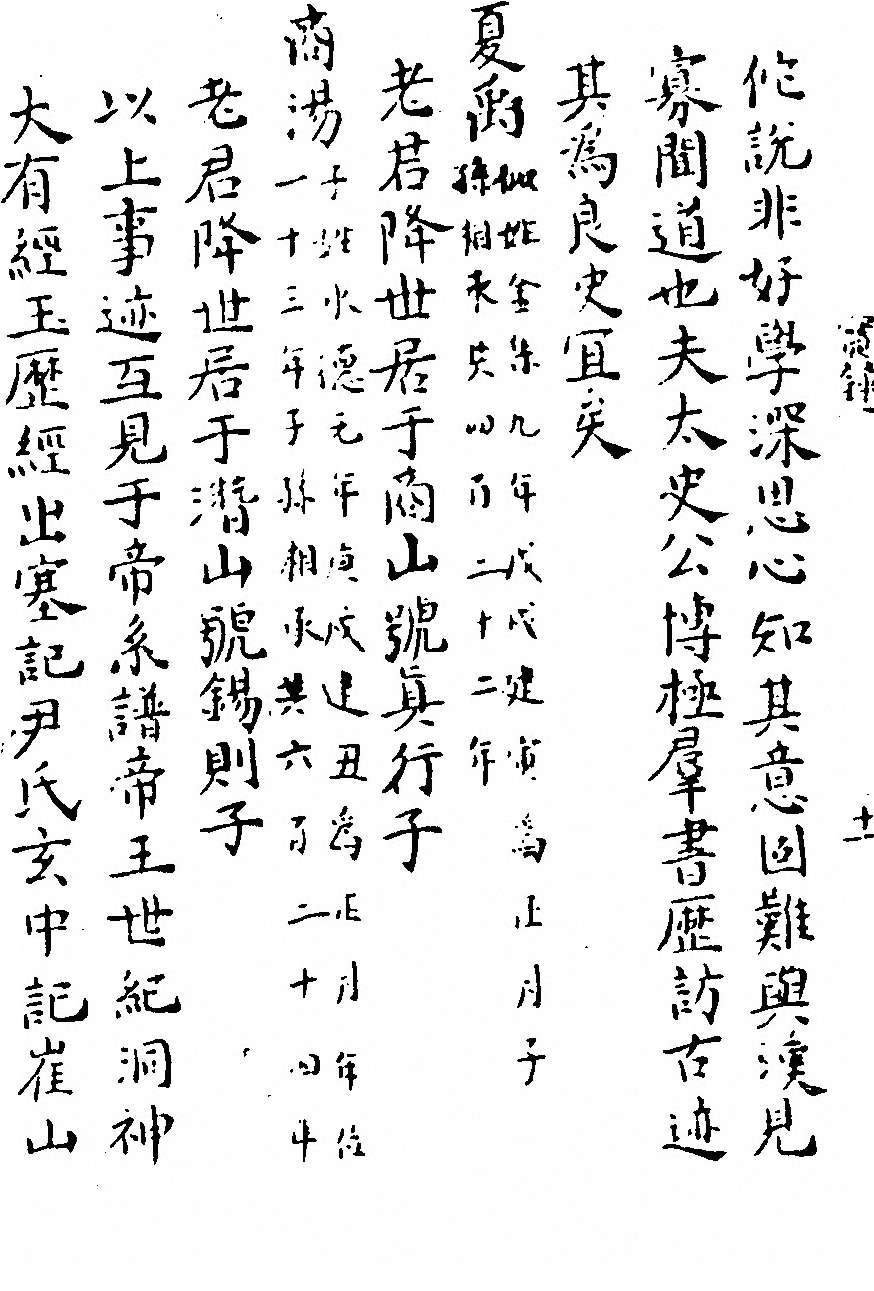 實錄
十一
佗說非好學深思心知其意固難與淺見
寡聞道也夫太史公博極羣書歷訪古迹
其爲良史宜矣
夏禹
姒姓金朱九年戊戌建寅爲正月子
孫相承共四百二十二年
老君降世居于商山號眞行子
商湯
子姓水德元年庚戌建丑爲正月年位
一十三年子孫相承共六百二十四年
老君降世居于潛山號錫則子
以上事迹互見于帝系譜帝王世紀洞神
大有經玉歷經出塞記尹氏玄中記崔山